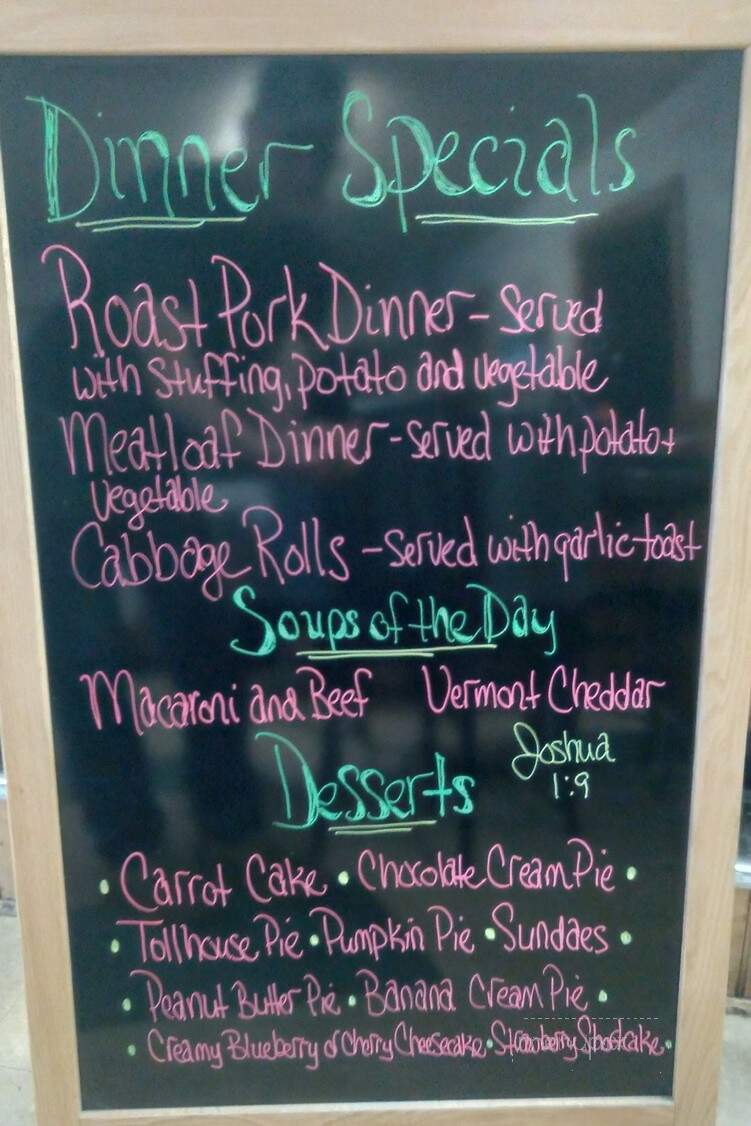 Dinner Specials
Roast Pork Dinner - Served
with stuffing, potato and vegetable
Meatloaf Dinner - served with potato +
vegetable
Cabbage Rolls - served with garlic toast
Soups of the Day
Macaroni and Beef Vermont Cheddar
Joshua
1:9
Desserts
• Carrot Cake • Chocolate Cream Pie •
• Tollhouse Pie • Pumpkin Pie • Sundaes •
• Peanut Butter Pie • Banana Cream Pie •
• Creamy Blueberry or Cherry Cheesecake • Strawberry Shortcake •